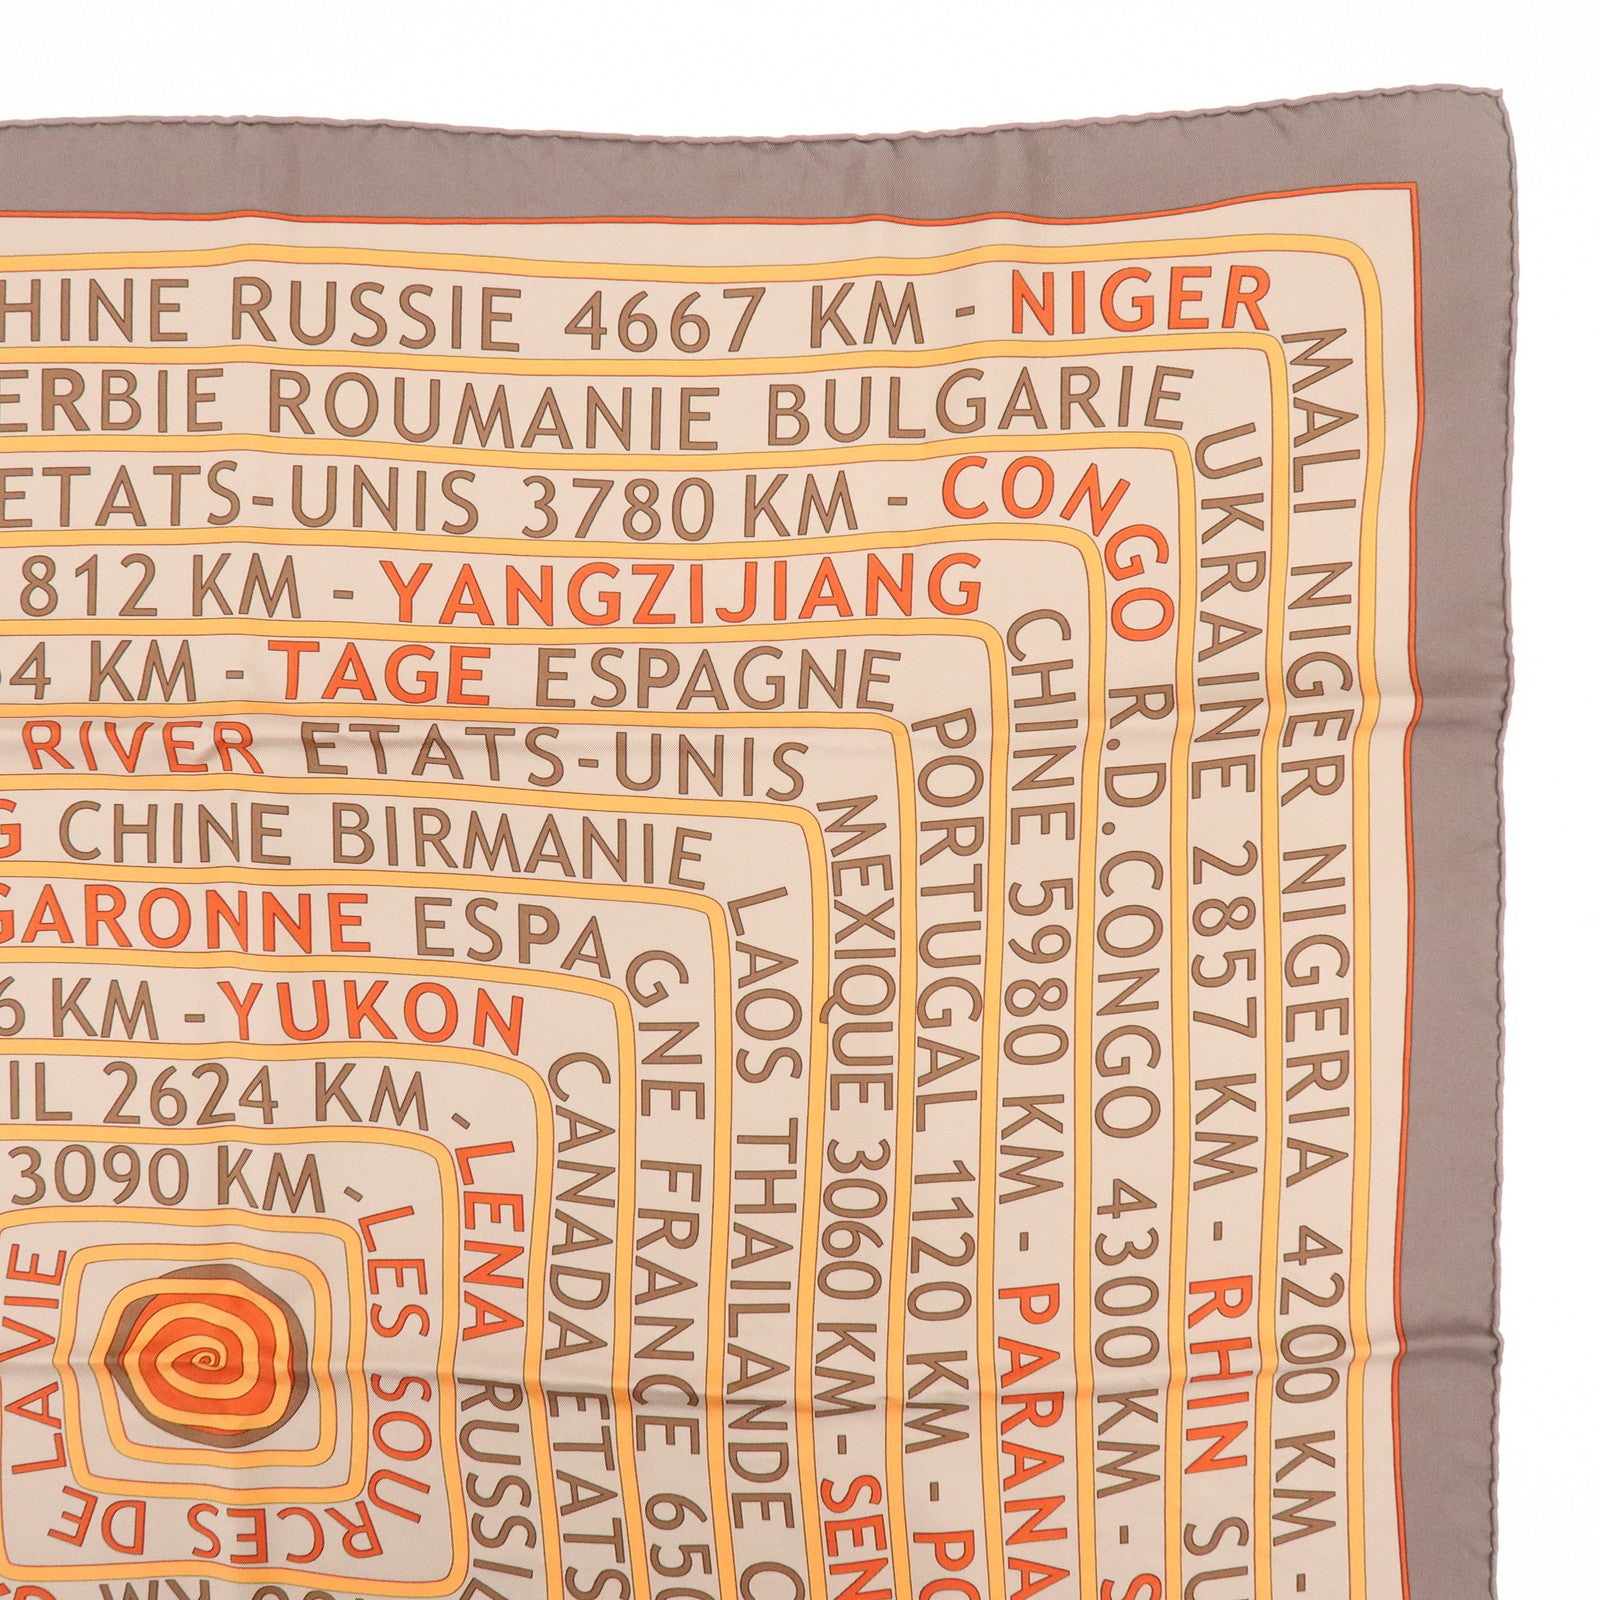 RUSSIE 4667 KM - NIGER MALI NIGER NIGERIA 4200 KM -
ROUMANIE BULGARIE UKRAINE 2857 KM - RHIN
ETATS-UNIS 3780 KM - CONGO R.D.CONGO 4300 KM -
812 KM - YANGZIJIANG CHINE 5980 KM - PARANA
KM - TAGE ESPAGNE PORTUGAL 1120 KM -
RIVER ETATS-UNIS MEXIQUE 3060 KM -
CHINE BIRMANIE LAOS THAILANDE
GARONNE ESPAGNE FRANCE
KM - YUKON CANADA ETATS
2624 KM - LENA
3090 KM - LES SOURCES DE LA VIE